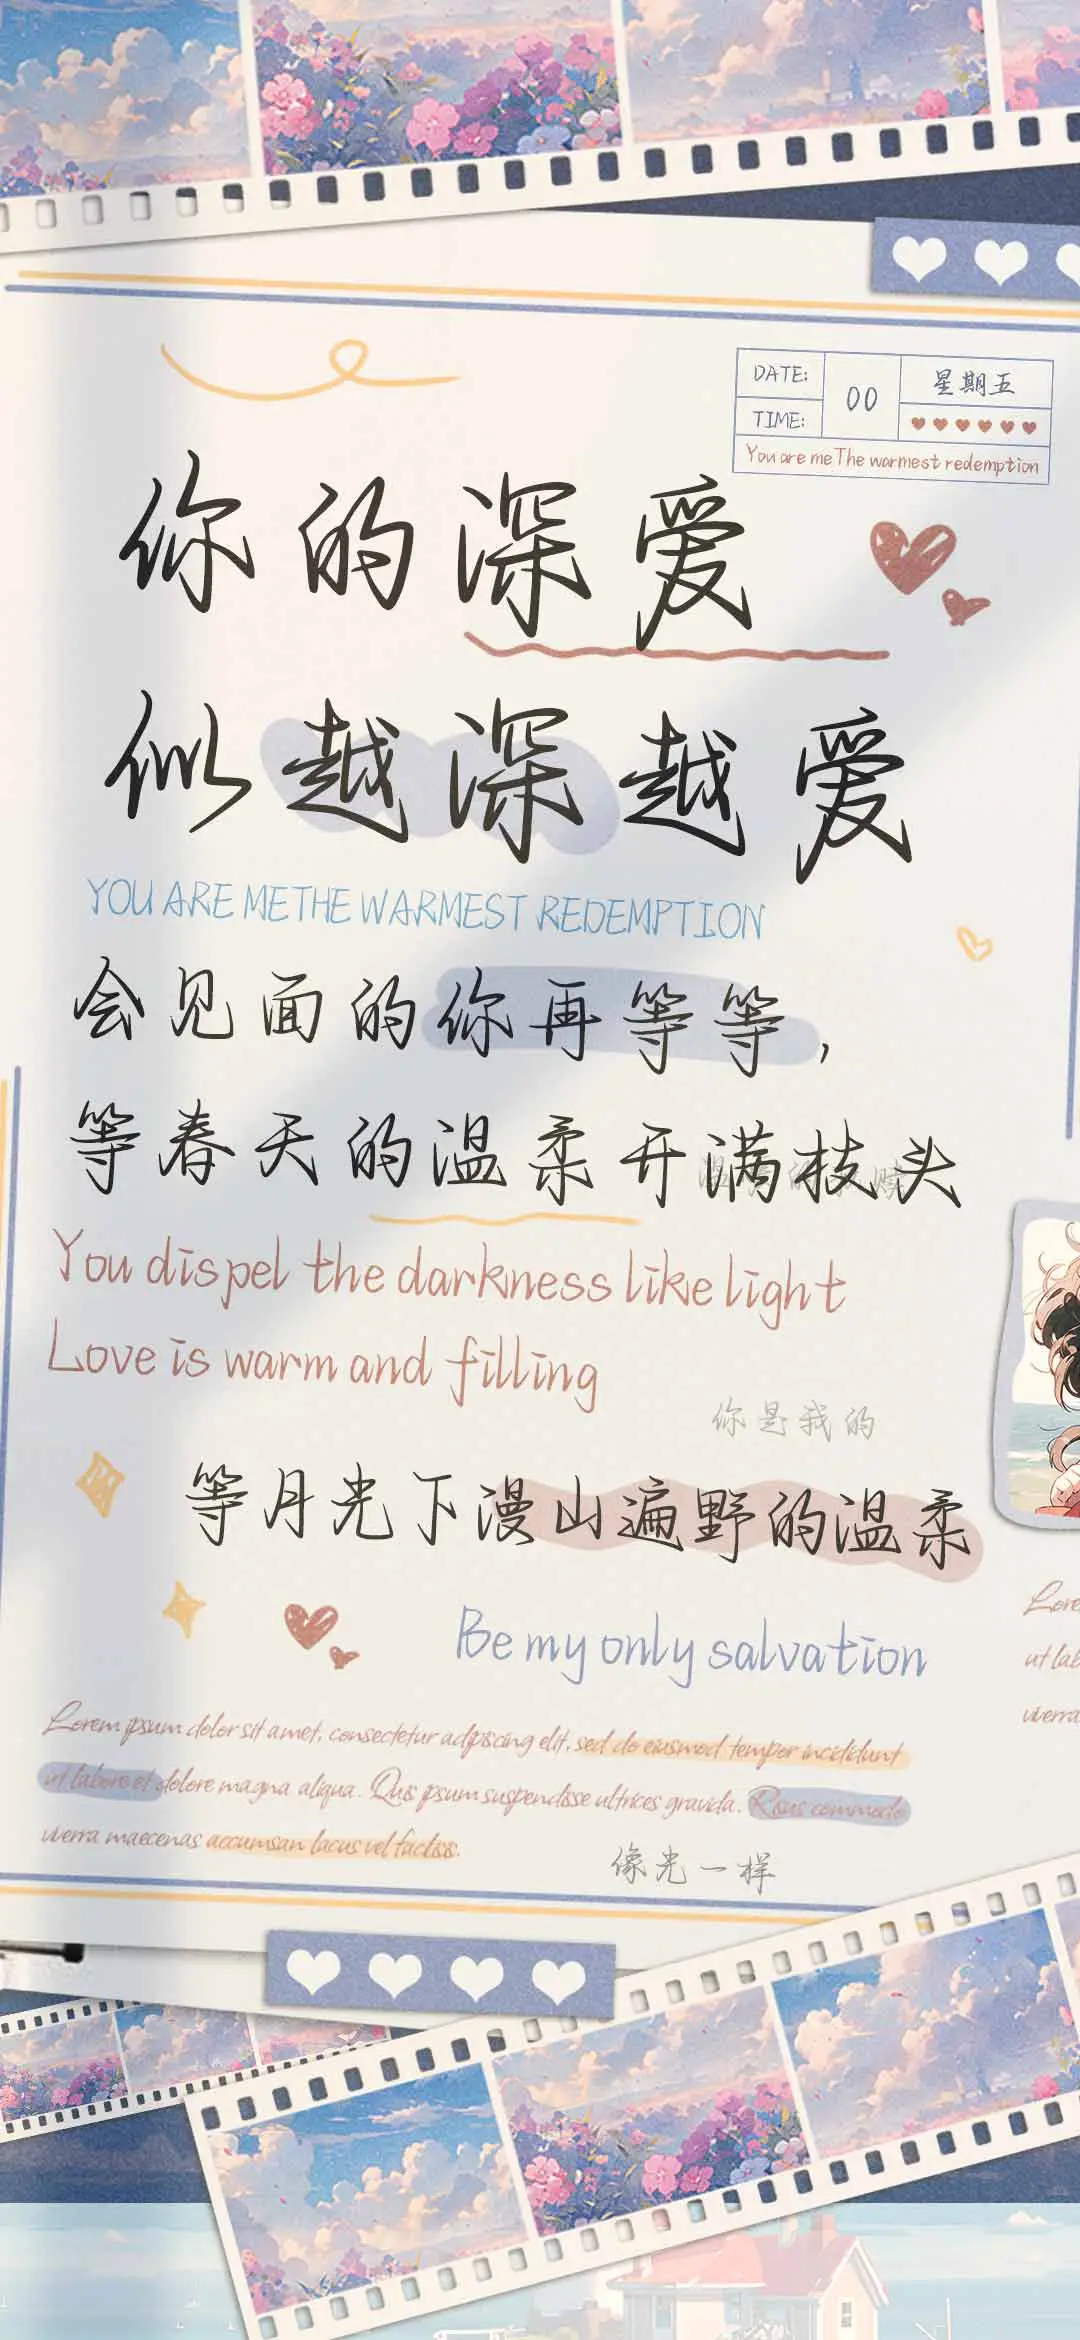 DATE:
00
星期五
TIME:
You are meThe warmest redemption
你的深爱
似越深越爱
YOU ARE METHE WARMEST REDEMPTION
会见面的你再等等,
等春天的温柔开满枝头
You dispel the darkness like light
Love is warm and filling
你是我的
等月光下漫山遍野的温柔
Be my only salvation
Lorem ipsum dolor sit amet, consectetur adipiscing elit, sed do eiusmod tempor incididunt
ut labore et dolore magna aliqua. Quis ipsum suspendisse ultrices gravida. Risus commodo
viverra maecenas accumsan lacus vel facilisis.
Lore
ut lab
viverra
像光一样